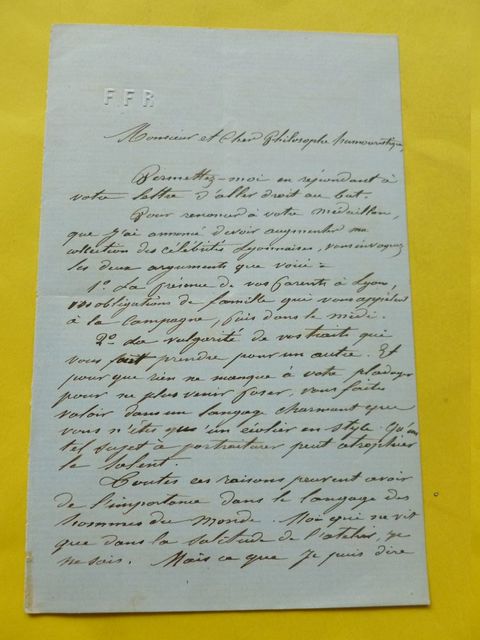 F F R
Monsieur et Cher Philosophe humouristique,
Permettez-moi en répondant à
votre lettre d'aller droit au but.
Pour renoncer à votre médaillon,
que j'ai annoncé devoir augmenter ma
collection des célébrités Lyonnaises, vous invoquez
les deux arguments que voici =
1o La présence de vos parents à Lyon,
vos obligations de famille qui vous appellent
à la campagne, puis dans le midi.
2o La vulgarité de vos traits qui
vous fait prendre pour un autre. Et
pour que rien ne manque à votre plaidoyer
pour ne plus venir poser, vous faites
valoir dans un langage charmant que
vous n'êtes qu'un écolier en style. Qu'un
tel sujet à portraiturer peut atrophier
le talent.
Toutes ces raisons peuvent avoir
de l'importance dans le langage des
hommes du monde. Moi qui ne vit
que dans la solitude de l'atelier, je
ne sais. Mais ce que je puis dire